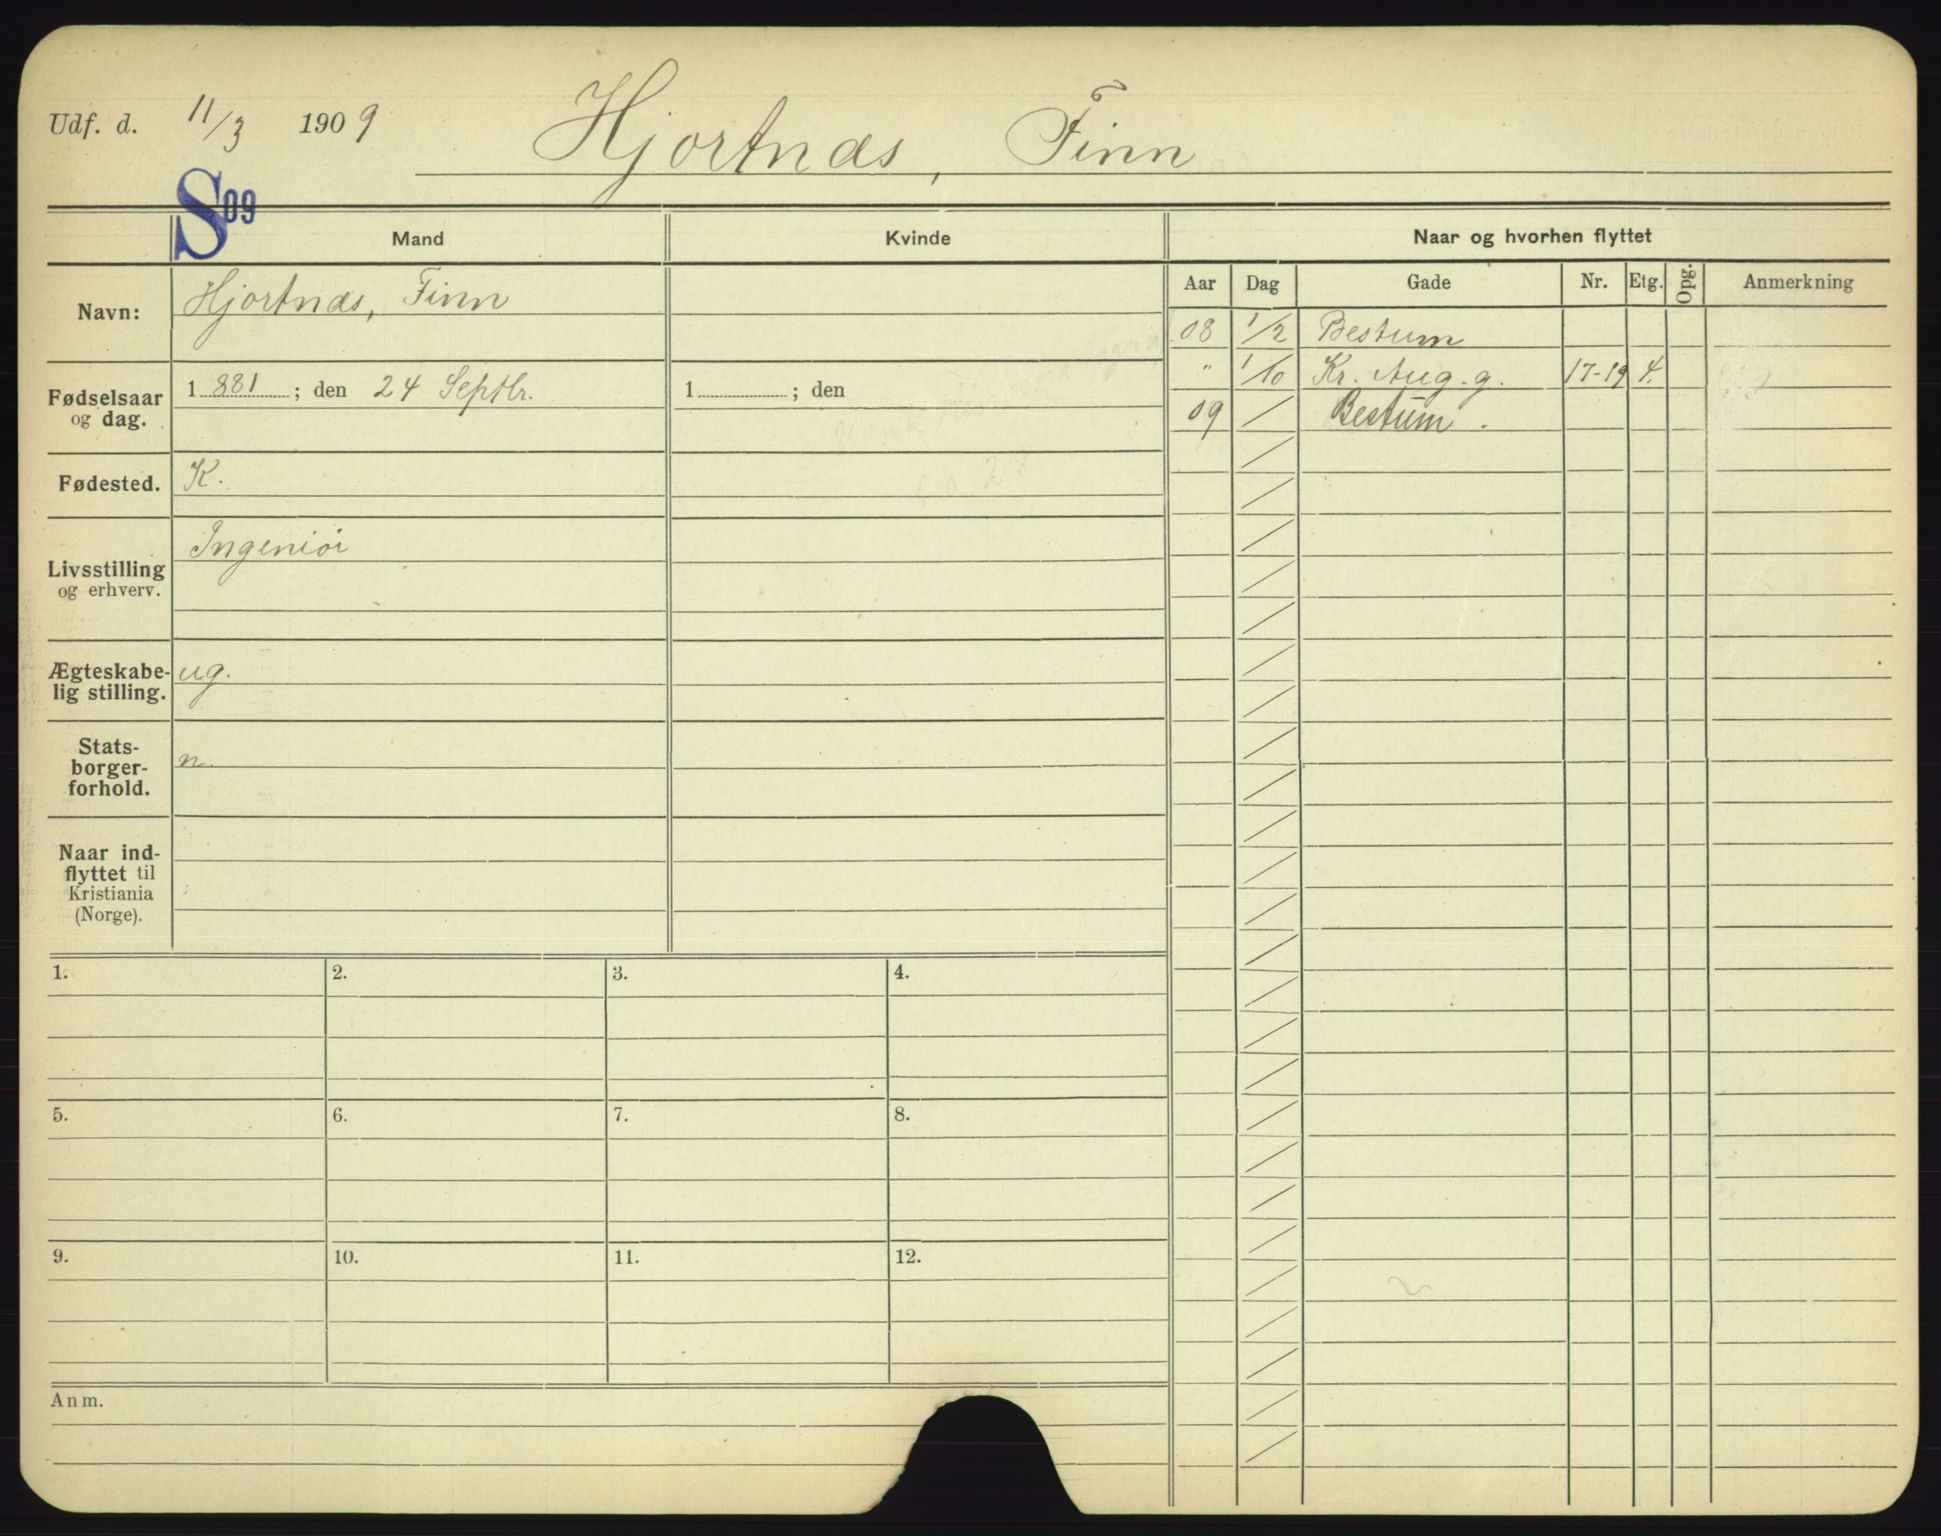 Udf. d. 11/3 1909
Hjortnæs, Finn
S09
Mand
Kvinde
Naar og hvorhen flyttet
Aar Dag Gade Nr. Etg. Opg. Anmerkning
Navn: Hjortnæs, Finn
Fødselsaar og dag. 1881; den 24 Septbr.
1 ; den
Fødested. K.
Livsstilling og erhverv. Ingeniör
Ægteskabe-
lig stilling. ug.
Stats-
borger-
forhold. n.
Naar ind-
flyttet til
Kristiania
(Norge).
08 1/2 Bestum
" 1/10 Kr. Aug. g. 17-19 4.
09 / Bestum.
1. 2. 3. 4.
5. 6. 7. 8.
9. 10. 11. 12.
Anm.